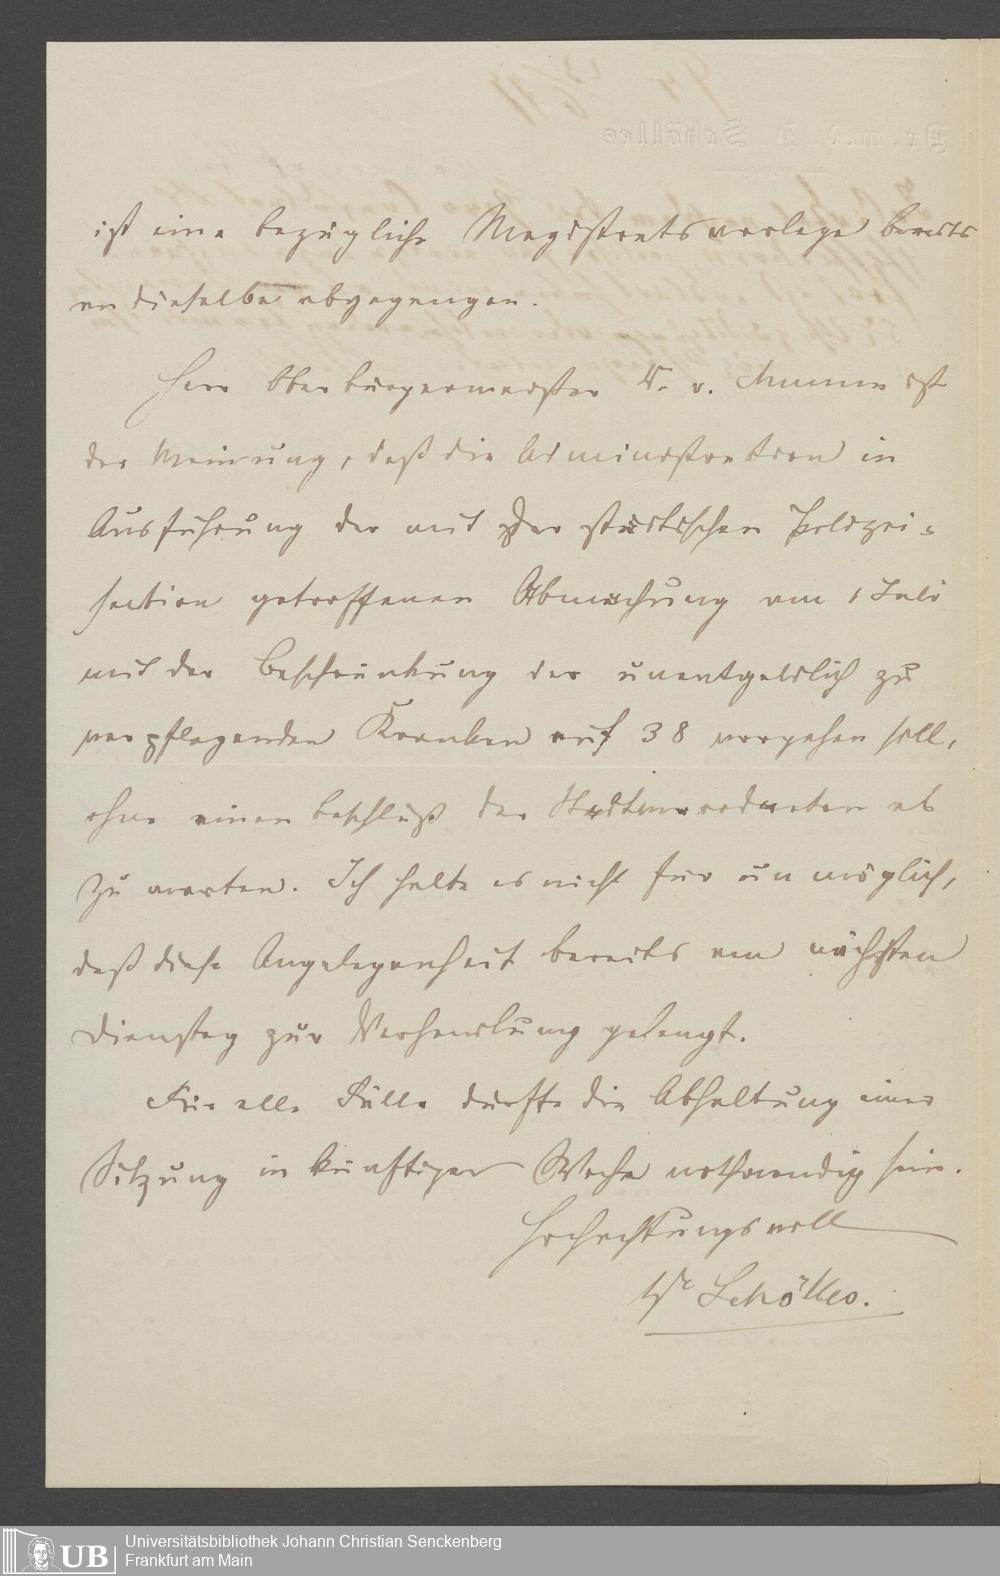 ist eine bezügliche Magistratsvorlage bereits
an dieselbe abgegangen.
Herr Oberbürgermeister Dr. v. Mumm ist
der Meinung, daß die Administration in
Ausführung der mit der städtischen Polizei-
section getroffenen Abmachung am 1 Juli
mit der Beschränkung der unentgeldlich zu
verpflegenden Kranken auf 38 vorgehen soll,
ohne einen Beschluß der Stadtverordneten ab
zu warten. Ich halte es nicht für unmöglich,
daß diese Angelegenheit bereits am nächsten
Dienstag zur Verhandlung gelangt.
Für alle Fälle dürfte die Abhaltung einer
Sitzung in künftiger Woche nothwendig sein.
Hochachtungsvoll
Dr Schölles.
Universitätsbibliothek Johann Christian Senckenberg
Frankfurt am Main
UB